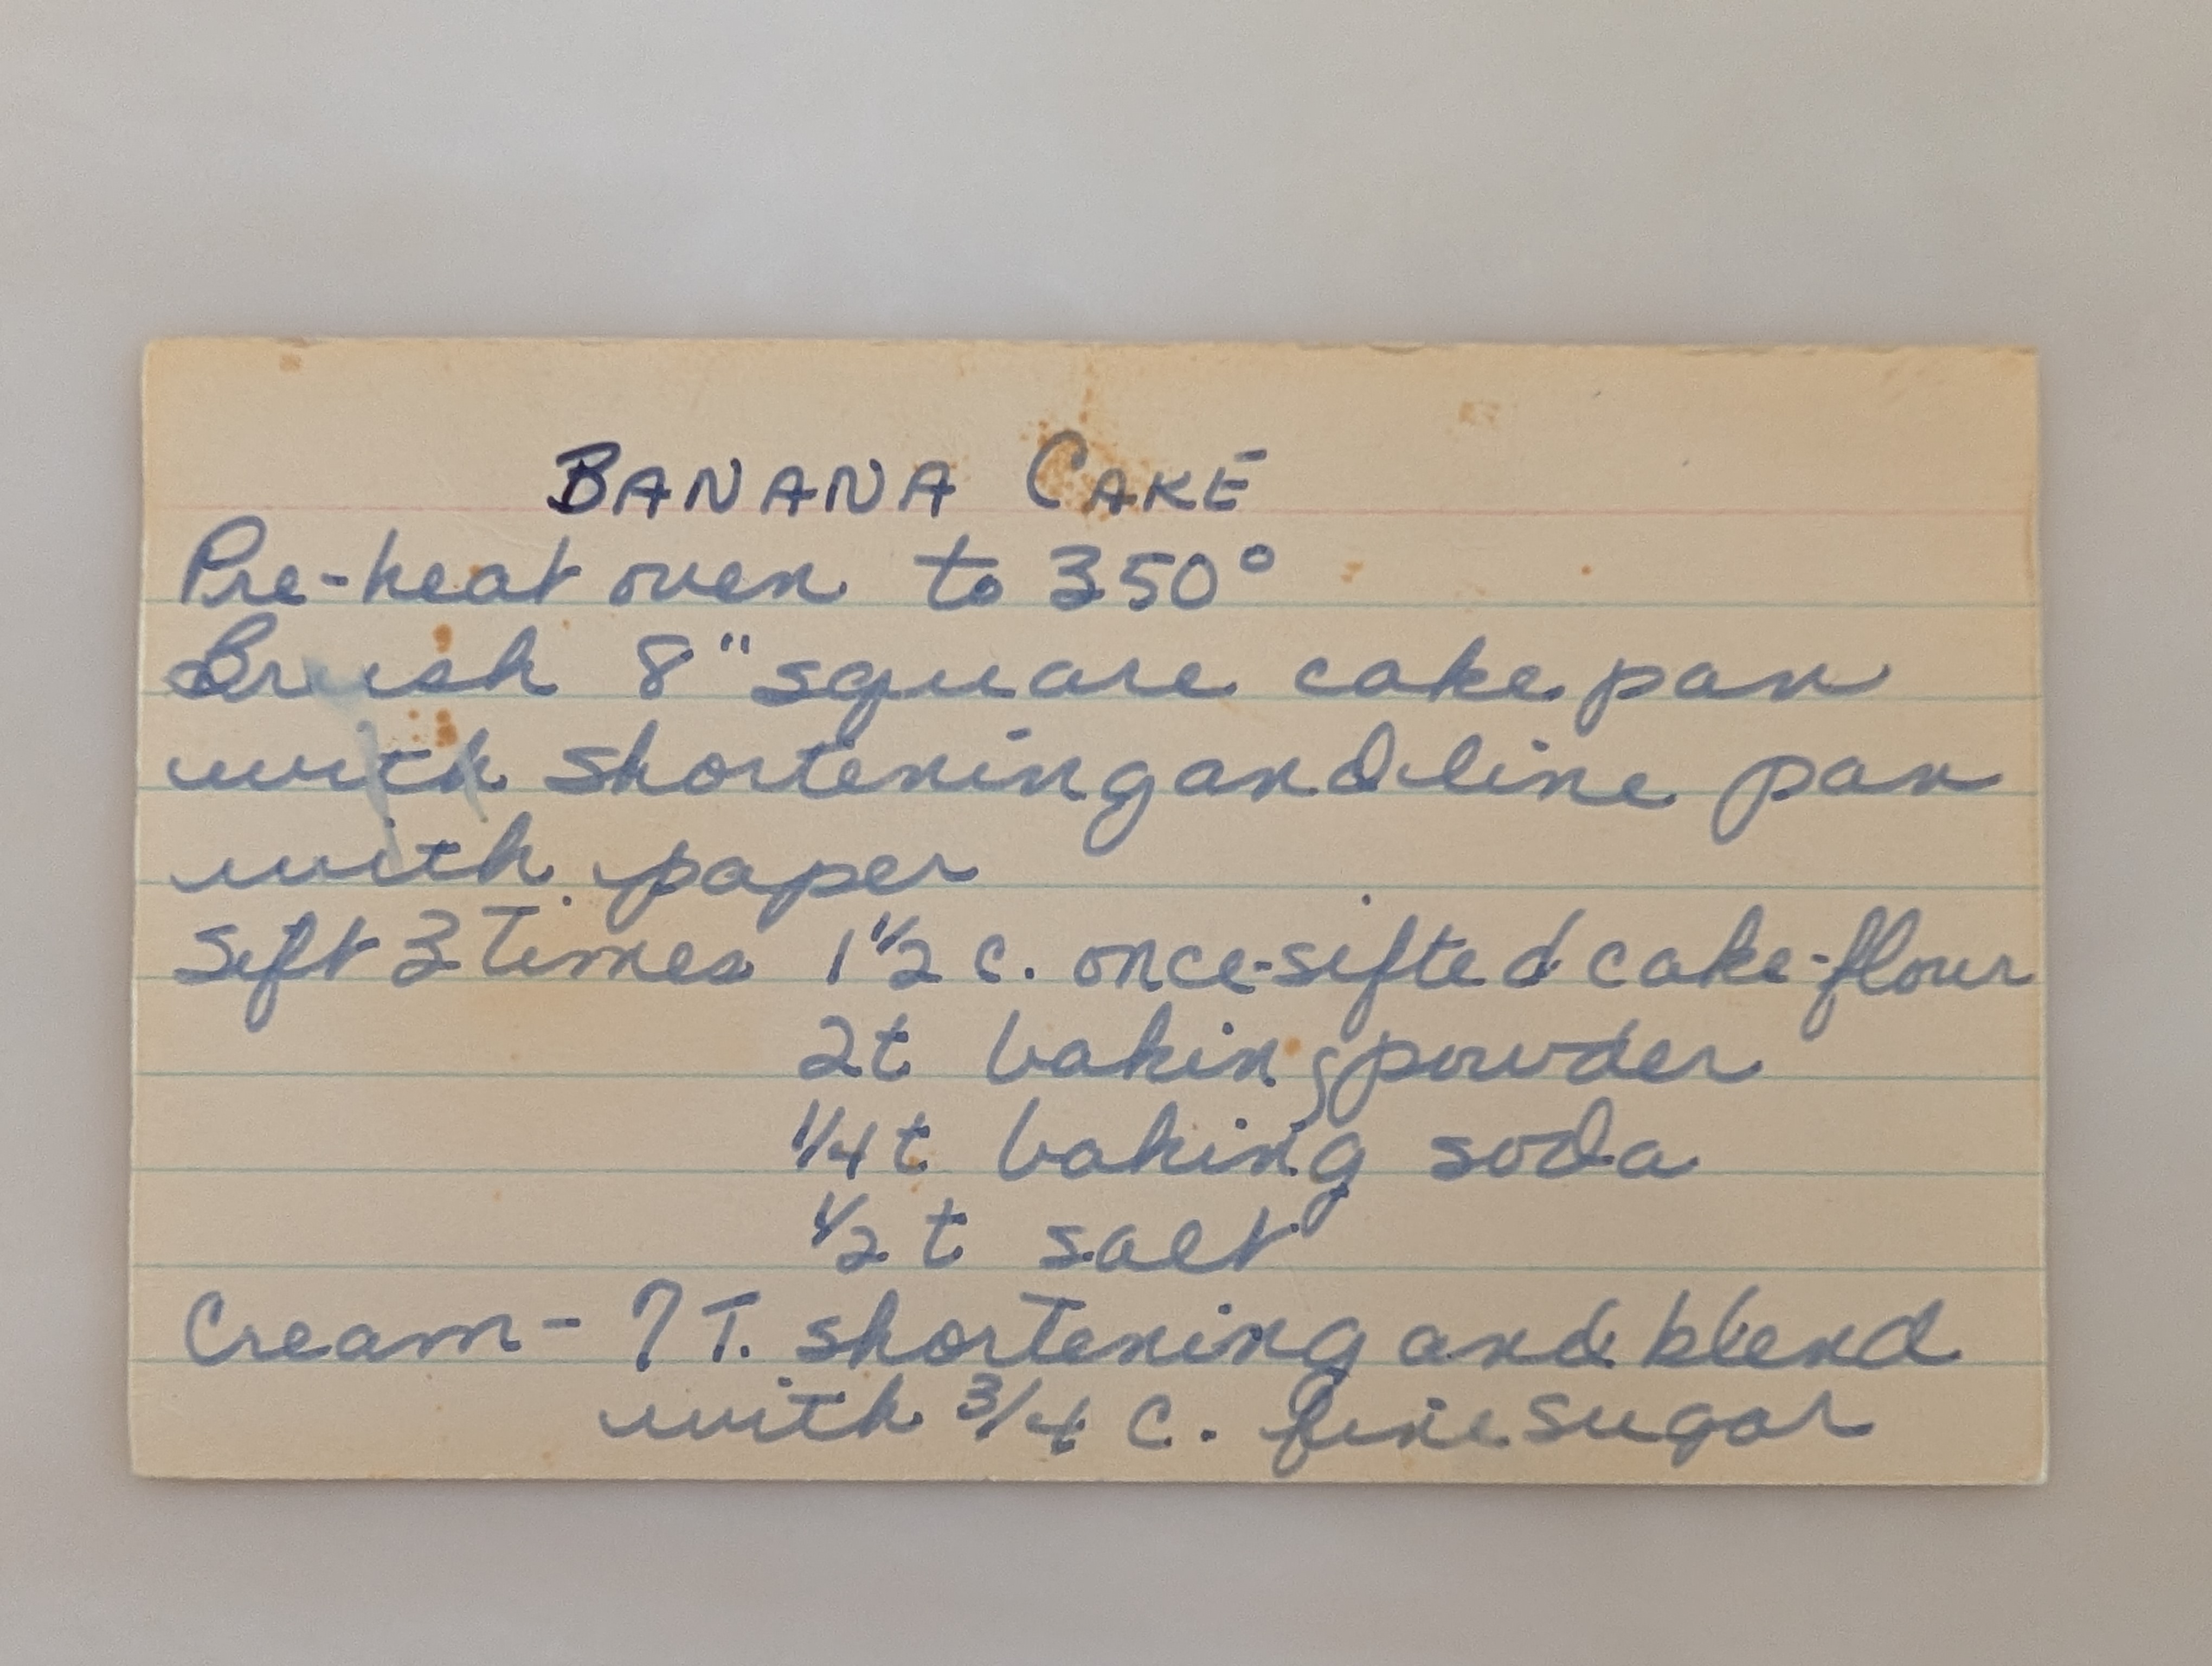 BANANA CAKE
Pre-heat oven to 350°
Brush 8" square cake pan
with shortening and line pan
with paper
Sift 3 Times 1 1/2 c. once-sifted cake-flour
2t baking powder
1/4 t baking soda
1/2 t salt
Cream - 7 T. shortening and blend
with 3/4 C. fine sugar